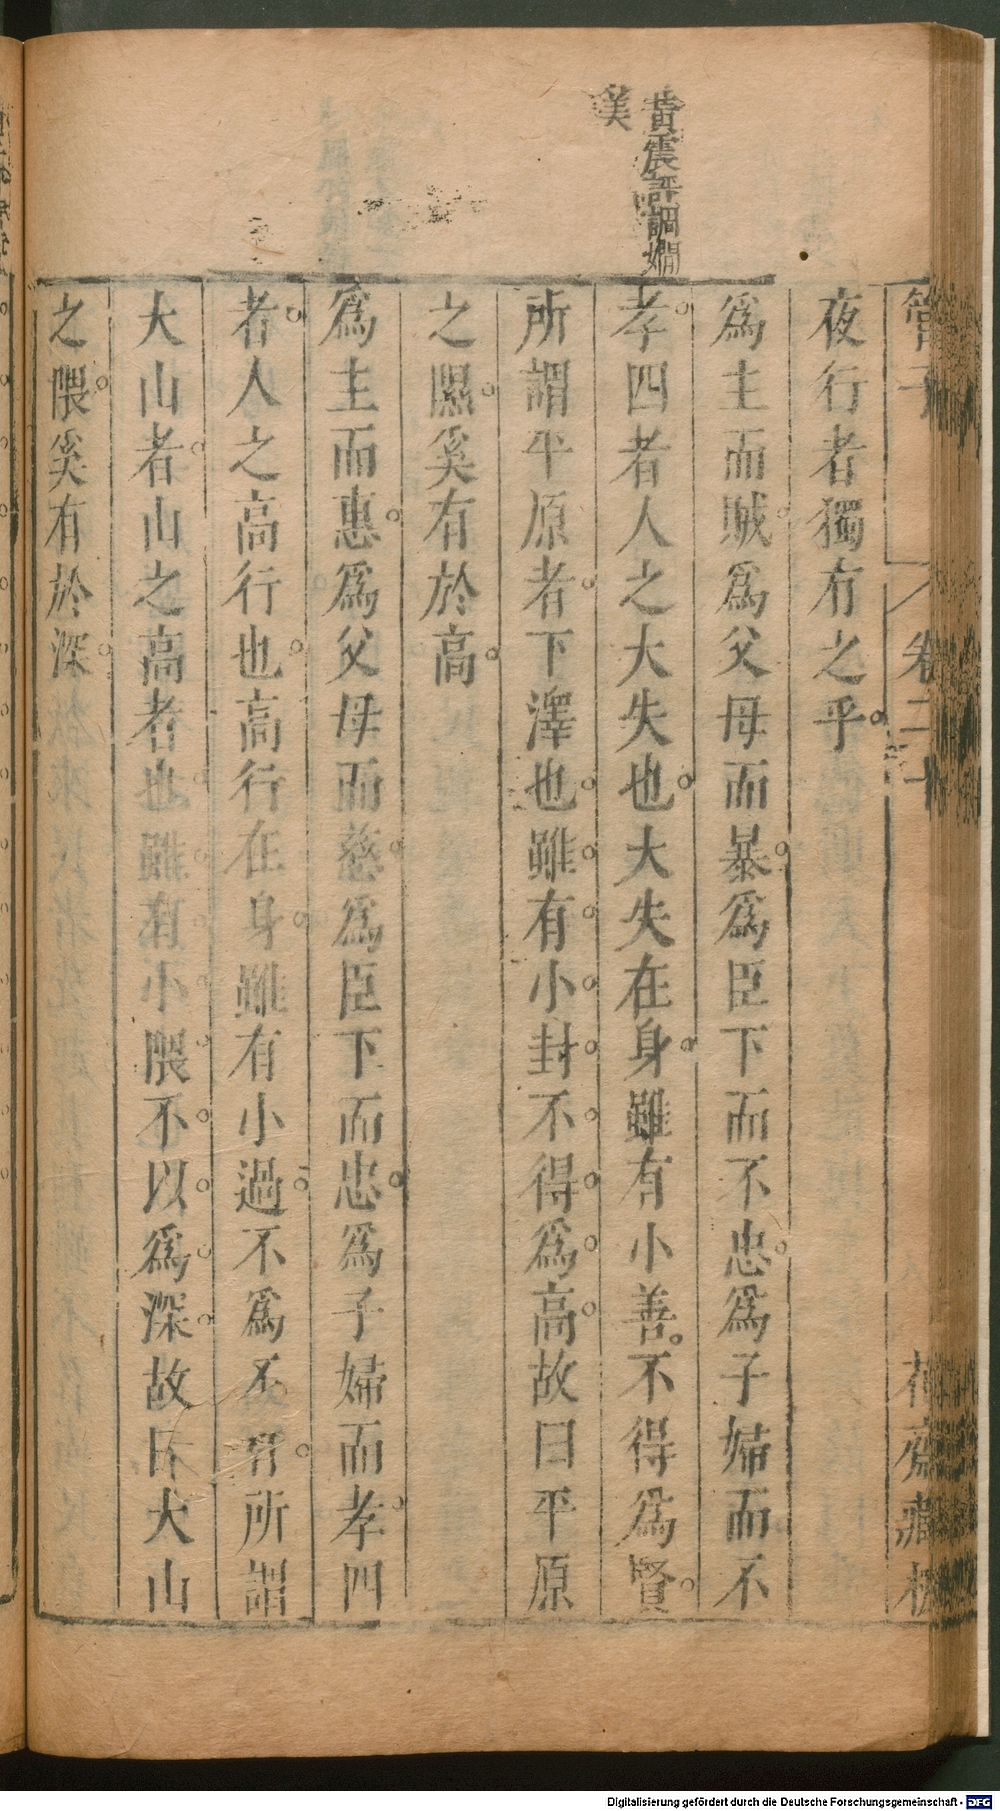 管子
卷二十
花齋藏板
夜行者獨有之乎
為主而賊為父母而暴為臣下而不忠為子婦而不
孝四者人之大失也大失在身雖有小善不得為賢
所謂平原者下澤也雖有小封不得為高故曰平原
之隰奚有於高
為主而惠為父母而慈為臣下而忠為子婦而孝四
者人之高行也高行在身雖有小過不為不肖所謂
大山者山之高者也雖有小隈不以為深故曰大山
之隈奚有於深
黃震評調嫺
美
Digitalisierung gefördert durch die Deutsche Forschungsgemeinschaft - DFG